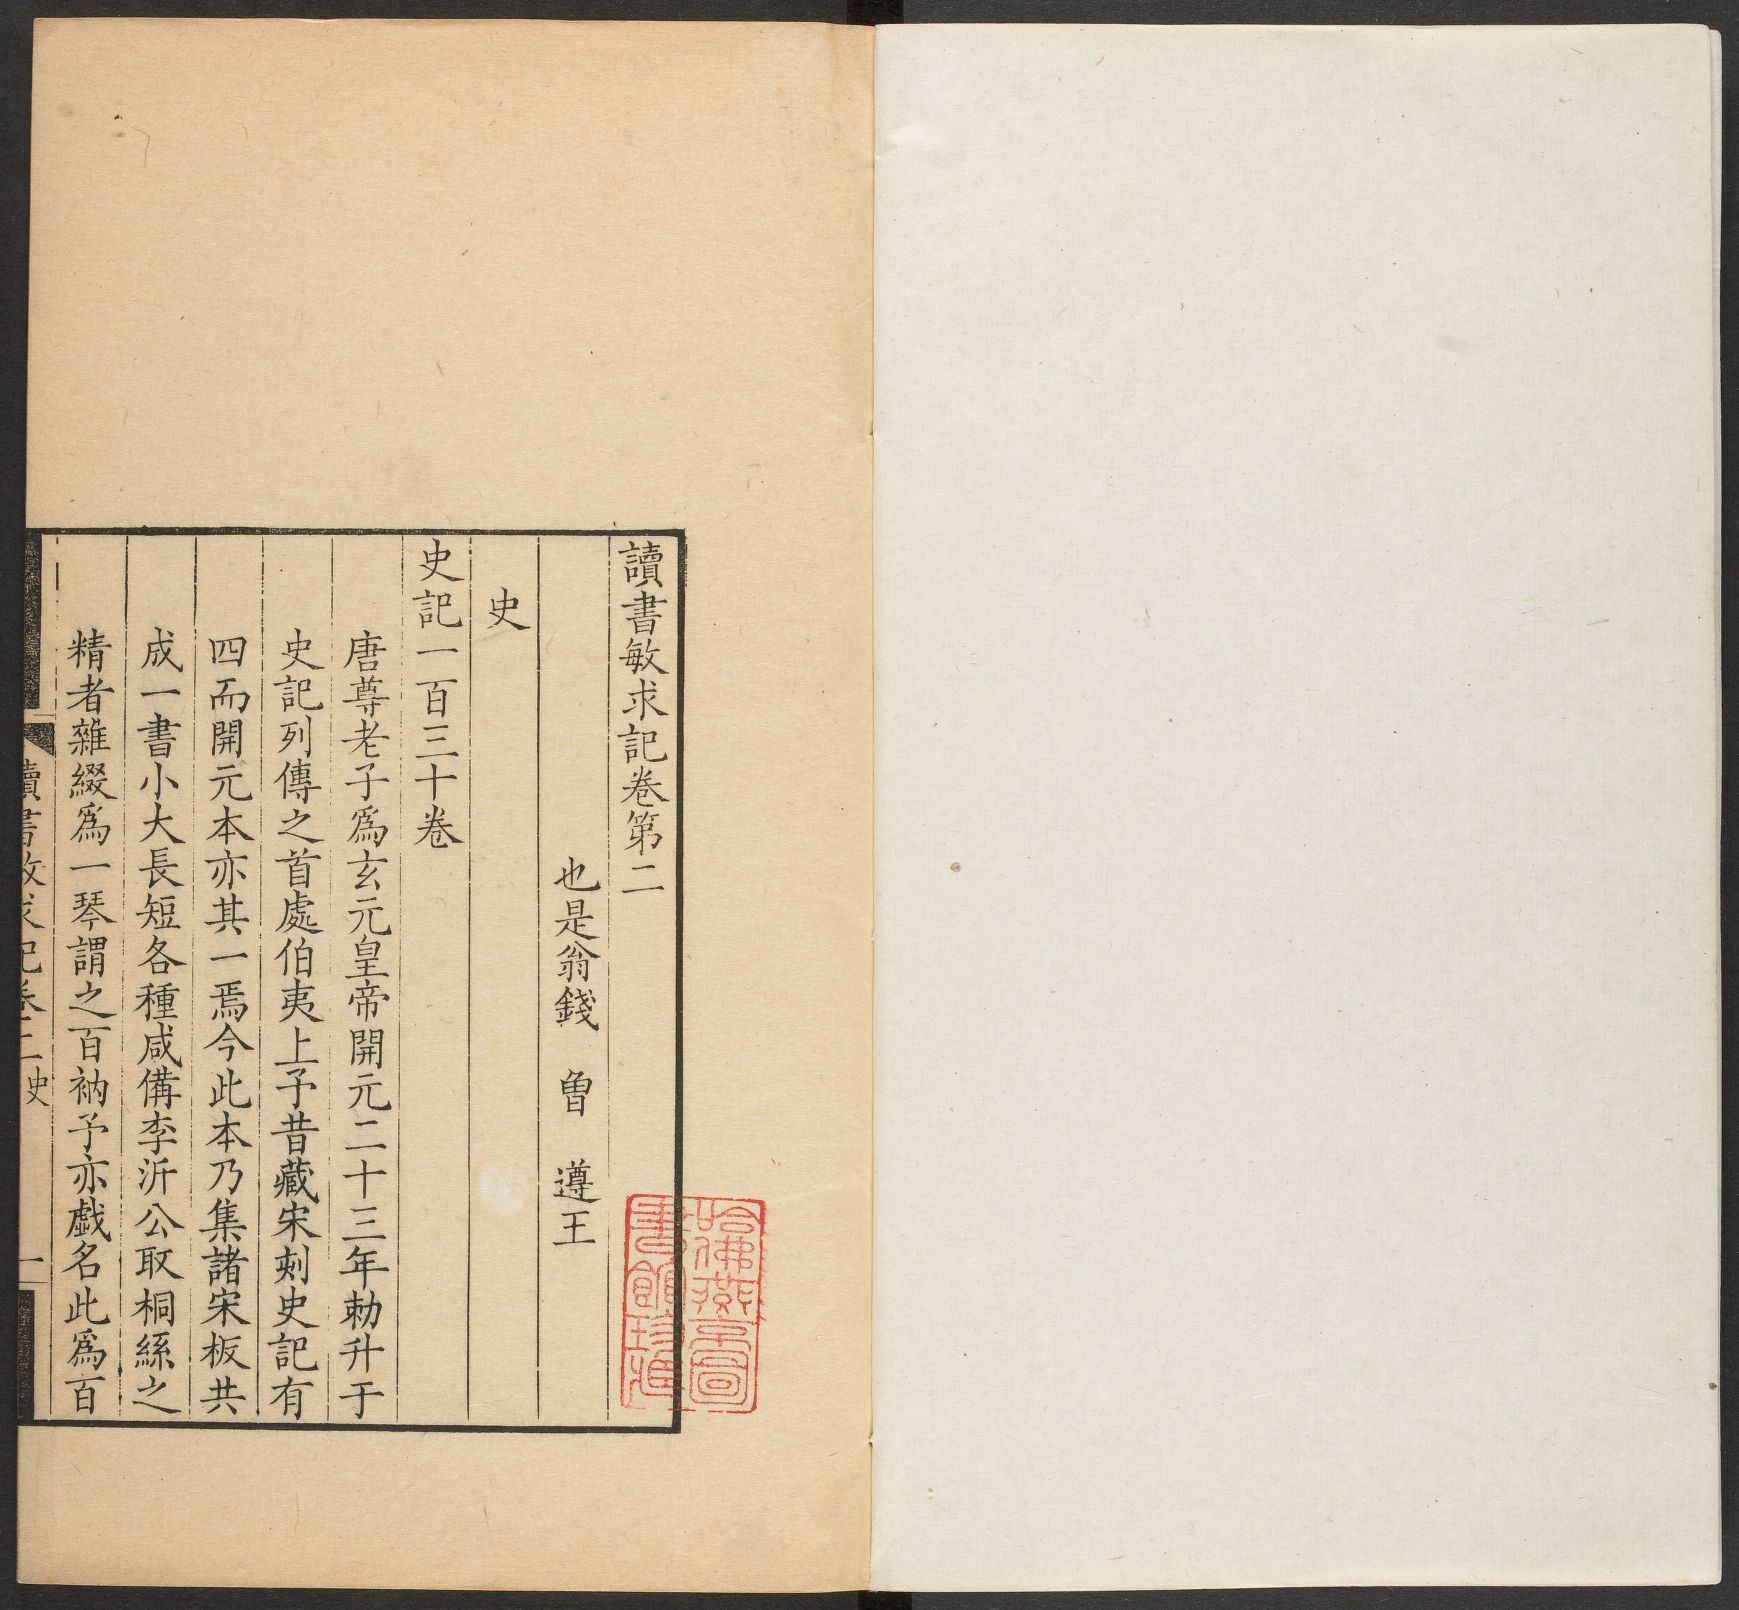 讀書敏求記卷第二
也是翁錢　曾　遵王
史
史記一百三十卷
唐尊老子爲玄元皇帝開元二十三年勅升于
史記列傳之首處伯夷上予昔藏宋刻史記有
四而開元本亦其一焉今此本乃集諸宋板共
成一書小大長短各種咸備李沂公取桐絲之
精者雜綴爲一琴謂之百衲予亦戲名此爲百
讀書敏求記卷二 史 一
哈佛燕京圖書館珍藏